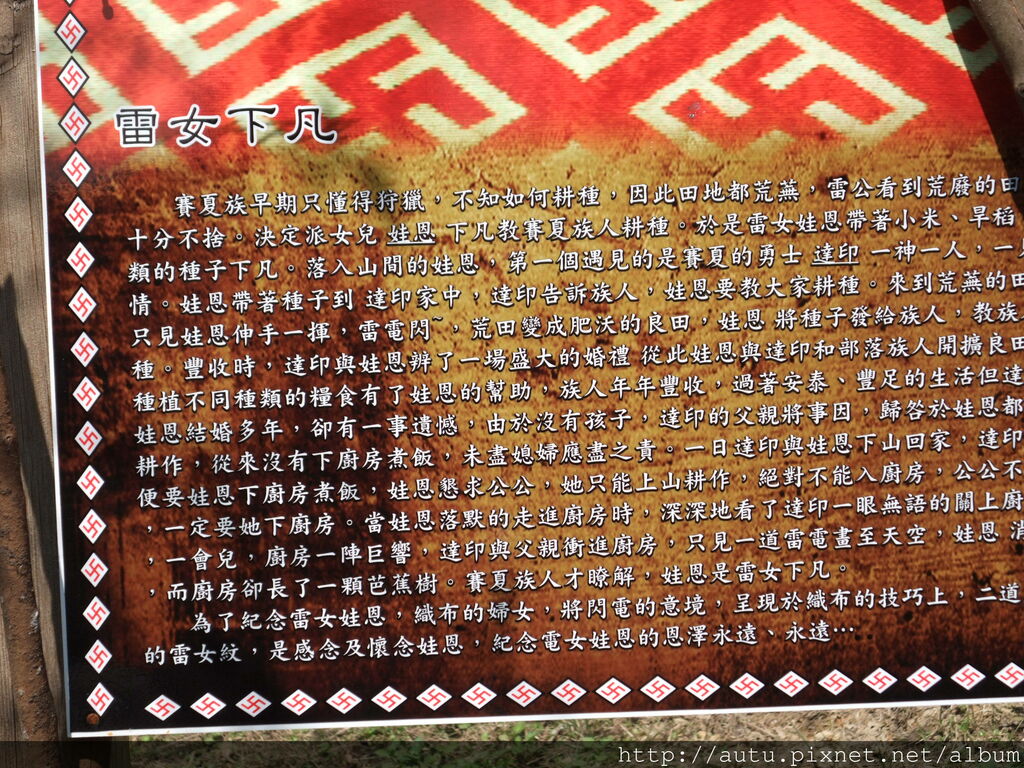 雷女下凡
賽夏族早期只懂得狩獵，不知如何耕種，因此田地都荒蕪，雷公看到荒廢的田
十分不捨。決定派女兒 娃恩 下凡教賽夏族人耕種。於是雷女娃恩帶著小米、旱稻
類的種子下凡。落入山間的娃恩，第一個遇見的是賽夏的勇士 達印 一神一人，一
情。娃恩帶著種子到 達印家中，達印告訴族人，娃恩要教大家耕種。來到荒蕪的田
只見娃恩伸手一揮，雷電閃~，荒田變成肥沃的良田，娃恩 將種子發給族人，教族
種。豐收時，達印與娃恩辨了一場盛大的婚禮 從此娃恩與達印和部落族人開擴良田
種植不同種類的糧食有了娃恩的幫助，族人年年豐收，過著安泰、豐足的生活但達
娃恩結婚多年，卻有一事遺憾，由於沒有孩子，達印的父親將事因，歸咎於娃恩都
耕作，從來沒有下廚房煮飯，未盡媳婦應盡之責。一日達印與娃恩下山回家，達印
便要娃恩下廚房煮飯，娃恩懇求公公，她只能上山耕作，絕對不能入廚房，公公不
，一定要她下廚房。當娃恩落默的走進廚房時，深深地看了達印一眼無語的關上廚
，一會兒，廚房一陣巨響，達印與父親衝進廚房，只見一道雷電畫至天空，娃恩 消
，而廚房卻長了一顆芭蕉樹。賽夏族人才瞭解，娃恩是雷女下凡。
為了紀念雷女娃恩，織布的婦女，將閃電的意境，呈現於織布的技巧上，二道
的雷女紋，是感念及懷念娃恩，紀念電女娃恩的恩澤永遠、永遠…
http://autu.pixnet.net/album